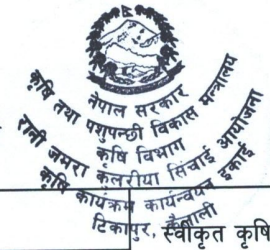 नेपाल सरकार
कृषि तथा पशुपन्छी विकास मन्त्रालय
कृषि विभाग
रानी जमरा कुलरीया सिंचाई आयोजना
कृषि कार्यक्रम कार्यन्वयन इकाई
टिकापुर, कैलाली
स्वीकृत कृषि